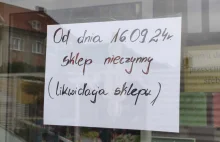 Od dnia 160924r
sklep nieczynny
(likwidacja sklepu)